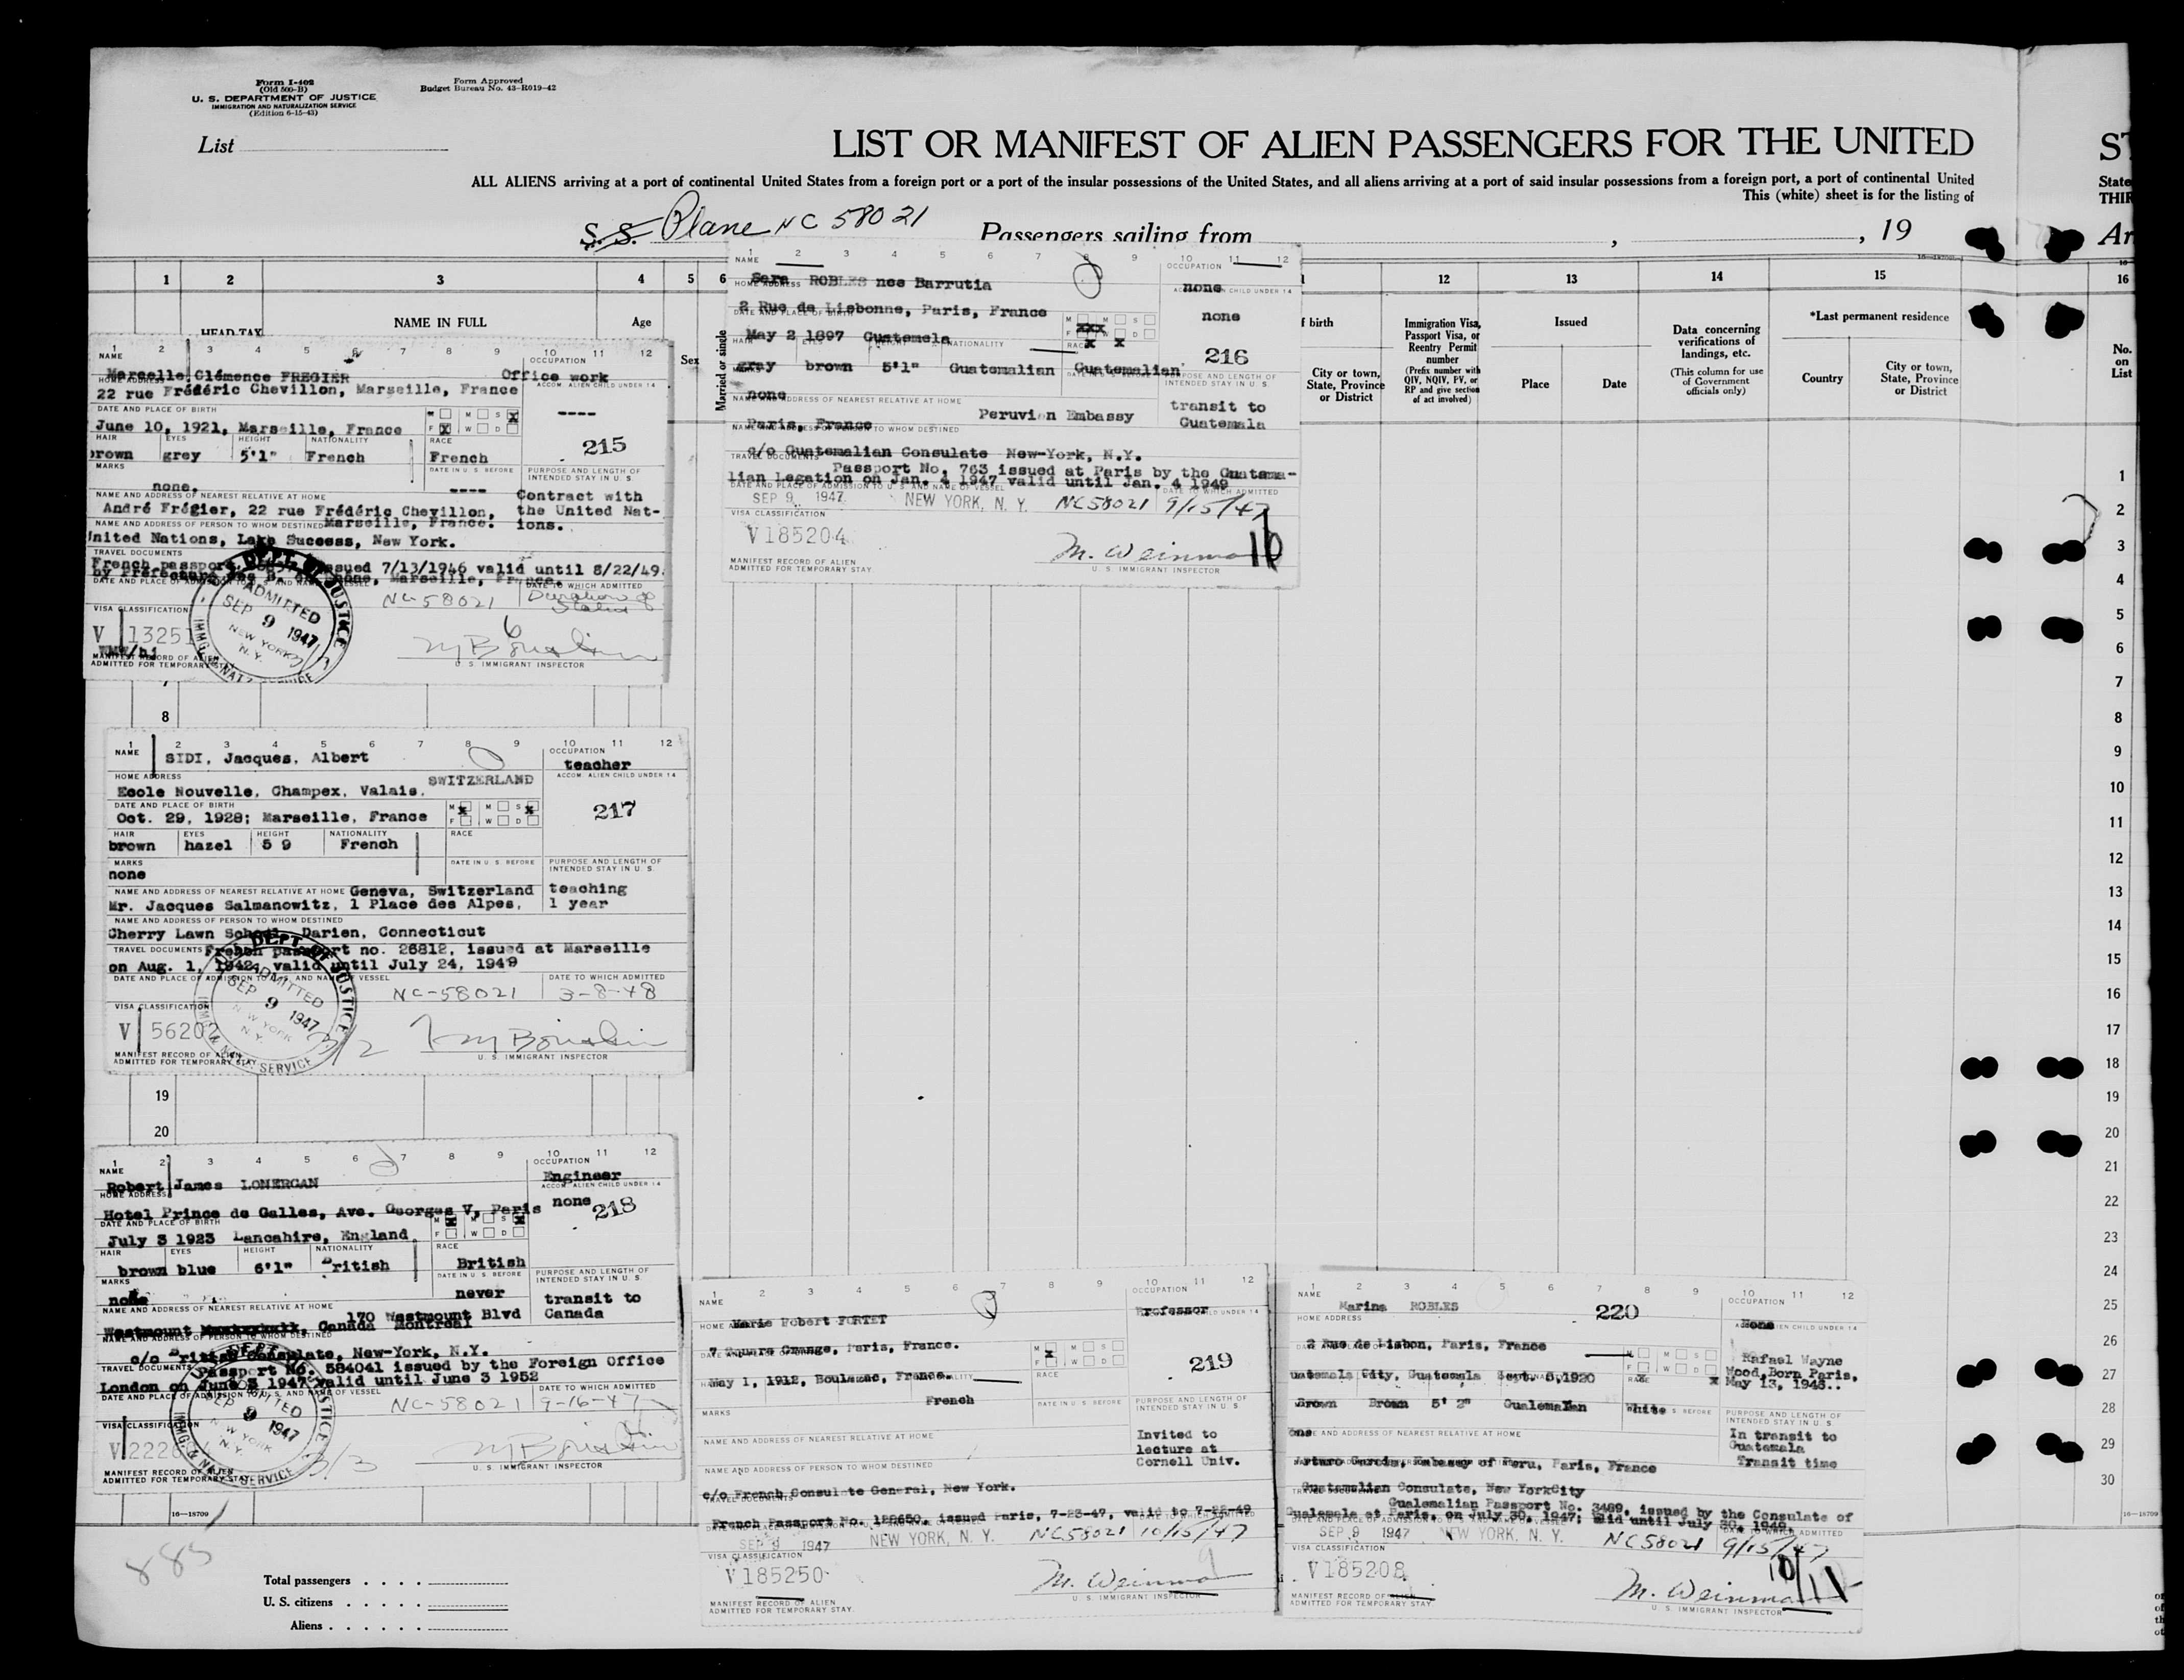 Form I-402
(Old 500-B)
U. S. DEPARTMENT OF JUSTICE
IMMIGRATION AND NATURALIZATION SERVICE
(Edition 6-15-43)
Form Approved
Budget Bureau No. 43-R019-42
List
LIST OR MANIFEST OF ALIEN PASSENGERS FOR THE UNITED
ALL ALIENS arriving at a port of continental United States from a foreign port or a port of the insular possessions of the United States, and all aliens arriving at a port of said insular possessions from a foreign port, a port of continental United
This (white) sheet is for the listing of
S. S. Plane NC 58021 Passengers sailing from , , 19
1 2 3 4 5 6
HEAD TAX
NAME IN FULL
Age
Sex
Married or single
12 13 14 15
f birth
City or town, State, Province or District
Immigration Visa, Passport Visa, or Reentry Permit number
(Prefix number with QIV, NQIV, PV, or RP and give section of act involved)
Issued
Place Date
Data concerning verifications of landings, etc.
(This column for use of Government officials only)
*Last permanent residence
Country
City or town, State, Province or District
16
No. on List
1 2 3 4 5 6 7 8 9 10 11 12
NAME
Marcelle Clémence FREGIER
OCCUPATION
Office work
HOME ADDRESS
22 rue Frédéric Chevillon, Marseille, France
ACCOM. ALIEN CHILD UNDER 14
----
DATE AND PLACE OF BIRTH
June 10, 1921, Marseille, France
215
HAIR EYES HEIGHT NATIONALITY RACE
rown grey 5'1" French French
MARKS
none.
DATE IN U. S. BEFORE
----
PURPOSE AND LENGTH OF INTENDED STAY IN U. S.
Contract with
the United Nat-
ions.
NAME AND ADDRESS OF NEAREST RELATIVE AT HOME
André Frégier, 22 rue Frédéric Chevillon,
Marseille, France.
NAME AND ADDRESS OF PERSON TO WHOM DESTINED
United Nations, Lake Success, New York.
TRAVEL DOCUMENTS
French passport issued 7/13/1946 valid until 8/22/49.
NC-58021
Duration of
Status
VISA CLASSIFICATION
V 1325
ADMITTED
SEP 9 1947
NEW YORK
N. Y.
U. S. IMMIGRANT INSPECTOR
1 2 3 4 5 6 7 8 9 10 11 12
NAME
Sara ROBLES nee Barrutia
OCCUPATION
none
HOME ADDRESS
2 Rue de Lisbonne, Paris, France
none
May 2 1897 Guatemala
216
gray brown 5'1" Guatemalian Guatemalian
none
NAME AND ADDRESS OF NEAREST RELATIVE AT HOME
Peruvian Embassy
Paris, France
transit to
Guatemala
c/o Guatemalian Consulate New-York, N.Y.
TRAVEL DOCUMENTS
Passport No. 763 issued at Paris by the Guatema-
lian Legation on Jan. 4 1947 valid until Jan. 4 1949
SEP 9 1947 NEW YORK, N. Y. NC58021 9/15/47
VISA CLASSIFICATION
V185204
M. Weinman
16
MANIFEST RECORD OF ALIEN
ADMITTED FOR TEMPORARY STAY.
U. S. IMMIGRANT INSPECTOR
1 2 3 4 5 6 7 8 9 10 11 12
NAME
SIDI, Jacques, Albert
OCCUPATION
teacher
HOME ADDRESS
SWITZERLAND
Ecole Nouvelle, Champex, Valais.
ACCOM. ALIEN CHILD UNDER 14
DATE AND PLACE OF BIRTH
Oct. 29, 1928; Marseille, France
217
HAIR EYES HEIGHT NATIONALITY RACE
brown hazel 5 9 French
MARKS
none
DATE IN U. S. BEFORE
PURPOSE AND LENGTH OF INTENDED STAY IN U. S.
teaching
1 year
NAME AND ADDRESS OF NEAREST RELATIVE AT HOME
Geneva, Switzerland
Mr. Jacques Salmanowitz, 1 Place des Alpes,
NAME AND ADDRESS OF PERSON TO WHOM DESTINED
Cherry Lawn School, Darien, Connecticut
TRAVEL DOCUMENTS
French passport no. 26812, issued at Marseille
on Aug. 1, 1942, valid until July 24, 1949
DATE TO WHICH ADMITTED
NC-58021 3-8-48
VISA CLASSIFICATION
V 56202
DEPT. OF JUSTICE
ADMITTED
SEP 9 1947
NEW YORK
N. Y.
IMMIG. & NAT. SERVICE
3/2
MANIFEST RECORD OF ALIEN
ADMITTED FOR TEMPORARY STAY
U. S. IMMIGRANT INSPECTOR
1 2 3 4 5 6 7 8 9 10 11 12
NAME
Robert James LONERGAN
OCCUPATION
Engineer
HOME ADDRESS
Hotel Prince de Galles, Ave. Georges V, Paris
none
218
DATE AND PLACE OF BIRTH
July 3 1923 Lancahire, England
HAIR EYES HEIGHT NATIONALITY RACE
brown blue 6'1" British British
MARKS
none
DATE IN U. S. BEFORE
never
PURPOSE AND LENGTH OF INTENDED STAY IN U. S.
transit to
Canada
NAME AND ADDRESS OF NEAREST RELATIVE AT HOME
170 Westmount Blvd
Westmount Canada Montreal
c/o British Consulate, New-York, N.Y.
TRAVEL DOCUMENTS
Passport No. 584041 issued by the Foreign Office
London on June 3 1947 valid until June 3 1952
DATE TO WHICH ADMITTED
NC-58021 9-16-47
VISA CLASSIFICATION
V 222
ADMITTED
SEP 9 1947
NEW YORK
N. Y.
3/3
MANIFEST RECORD OF ALIEN
ADMITTED FOR TEMPORARY STAY
U. S. IMMIGRANT INSPECTOR
1 2 3 4 5 6 7 8 9 10 11 12
NAME
Marie Robert FORTET
OCCUPATION
Professor
HOME ADDRESS
7 Square Grange, Paris, France.
May 1, 1912, Boulazac, France.
219
French
MARKS
DATE IN U. S. BEFORE
PURPOSE AND LENGTH OF INTENDED STAY IN U. S.
Invited to
lecture at
Cornell Univ.
NAME AND ADDRESS OF NEAREST RELATIVE AT HOME
NAME AND ADDRESS OF PERSON TO WHOM DESTINED
c/o French Consulate General, New York.
French Passport No. issued Paris, 7-23-47, valid to
SEP 9 1947 NEW YORK, N. Y. NC58021 10/15/47
VISA CLASSIFICATION
V185250
9
M. Weinman
MANIFEST RECORD OF ALIEN
ADMITTED FOR TEMPORARY STAY.
U. S. IMMIGRANT INSPECTOR
1 2 3 4 5 6 7 8 9 10 11 12
NAME
Marina ROBLES
220
OCCUPATION
None
HOME ADDRESS
2 Rue de Lisbon, Paris, France
Rafael Wayne
Wood, Born Paris,
May 13, 1946..
uatemala City, Guatemala Sept. 5, 1920
Brown Brown 5' 2" White
PURPOSE AND LENGTH OF INTENDED STAY IN U. S.
In transit to
Guatemala
Transit time
AND ADDRESS OF NEAREST RELATIVE AT HOME
Arturo Garcia, Embassy of Peru, Paris, France
Guatemalian Consulate, New YorkCity
Passport No. 3489, issued by the Consulate of
at Paris, on July 30, 1947; until July 30, 1948
SEP 9 1947 NEW YORK, N. Y. NC58021 9/15/47
VISA CLASSIFICATION
V185208
10/11
M. Weinman
MANIFEST RECORD OF ALIEN
ADMITTED FOR TEMPORARY STAY.
U. S. IMMIGRANT INSPECTOR
8
19
20
1
2
3
4
5
6
7
8
9
10
11
12
13
14
15
16
17
18
19
20
21
22
23
24
25
26
27
28
29
30
16—18709
885
Total passengers . . . .
U. S. citizens . . . . .
Aliens . . . . . .